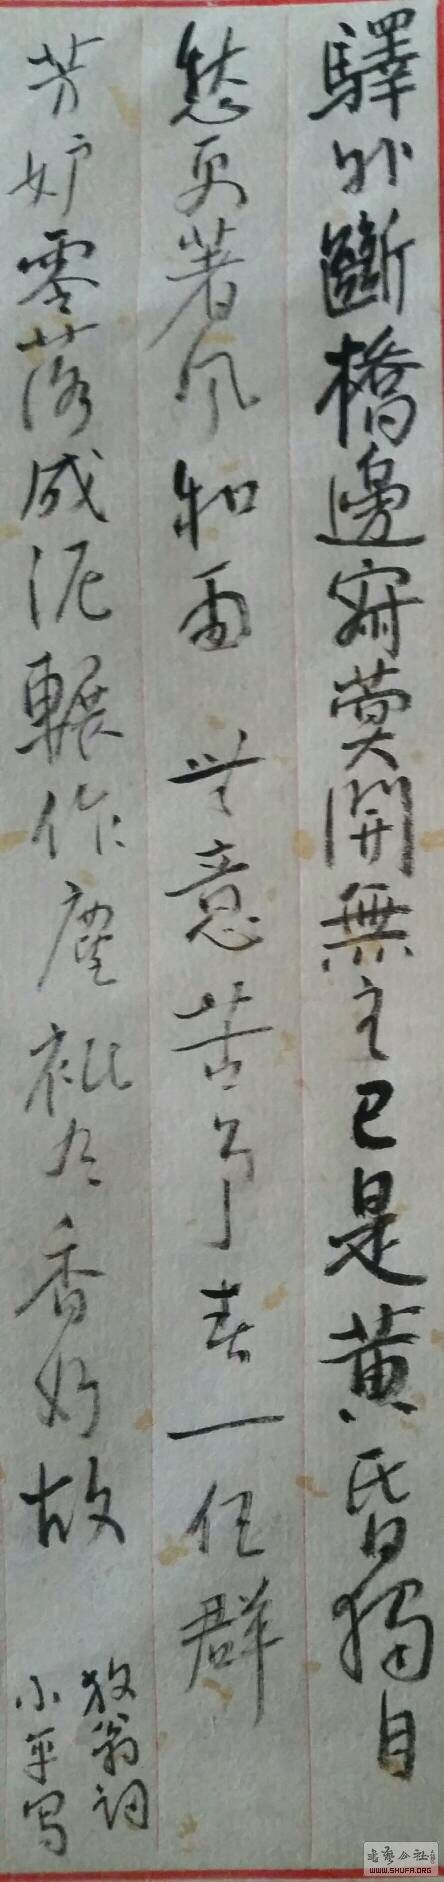 驛外斷橋邊寂寞開無主已是黄昏獨自
愁更著風和雨 無意苦爭春一任群
芳妒零落成泥輾作塵祇有香如故
放翁詞
小平写
書藝公社
WWW.SHUFA.ORG